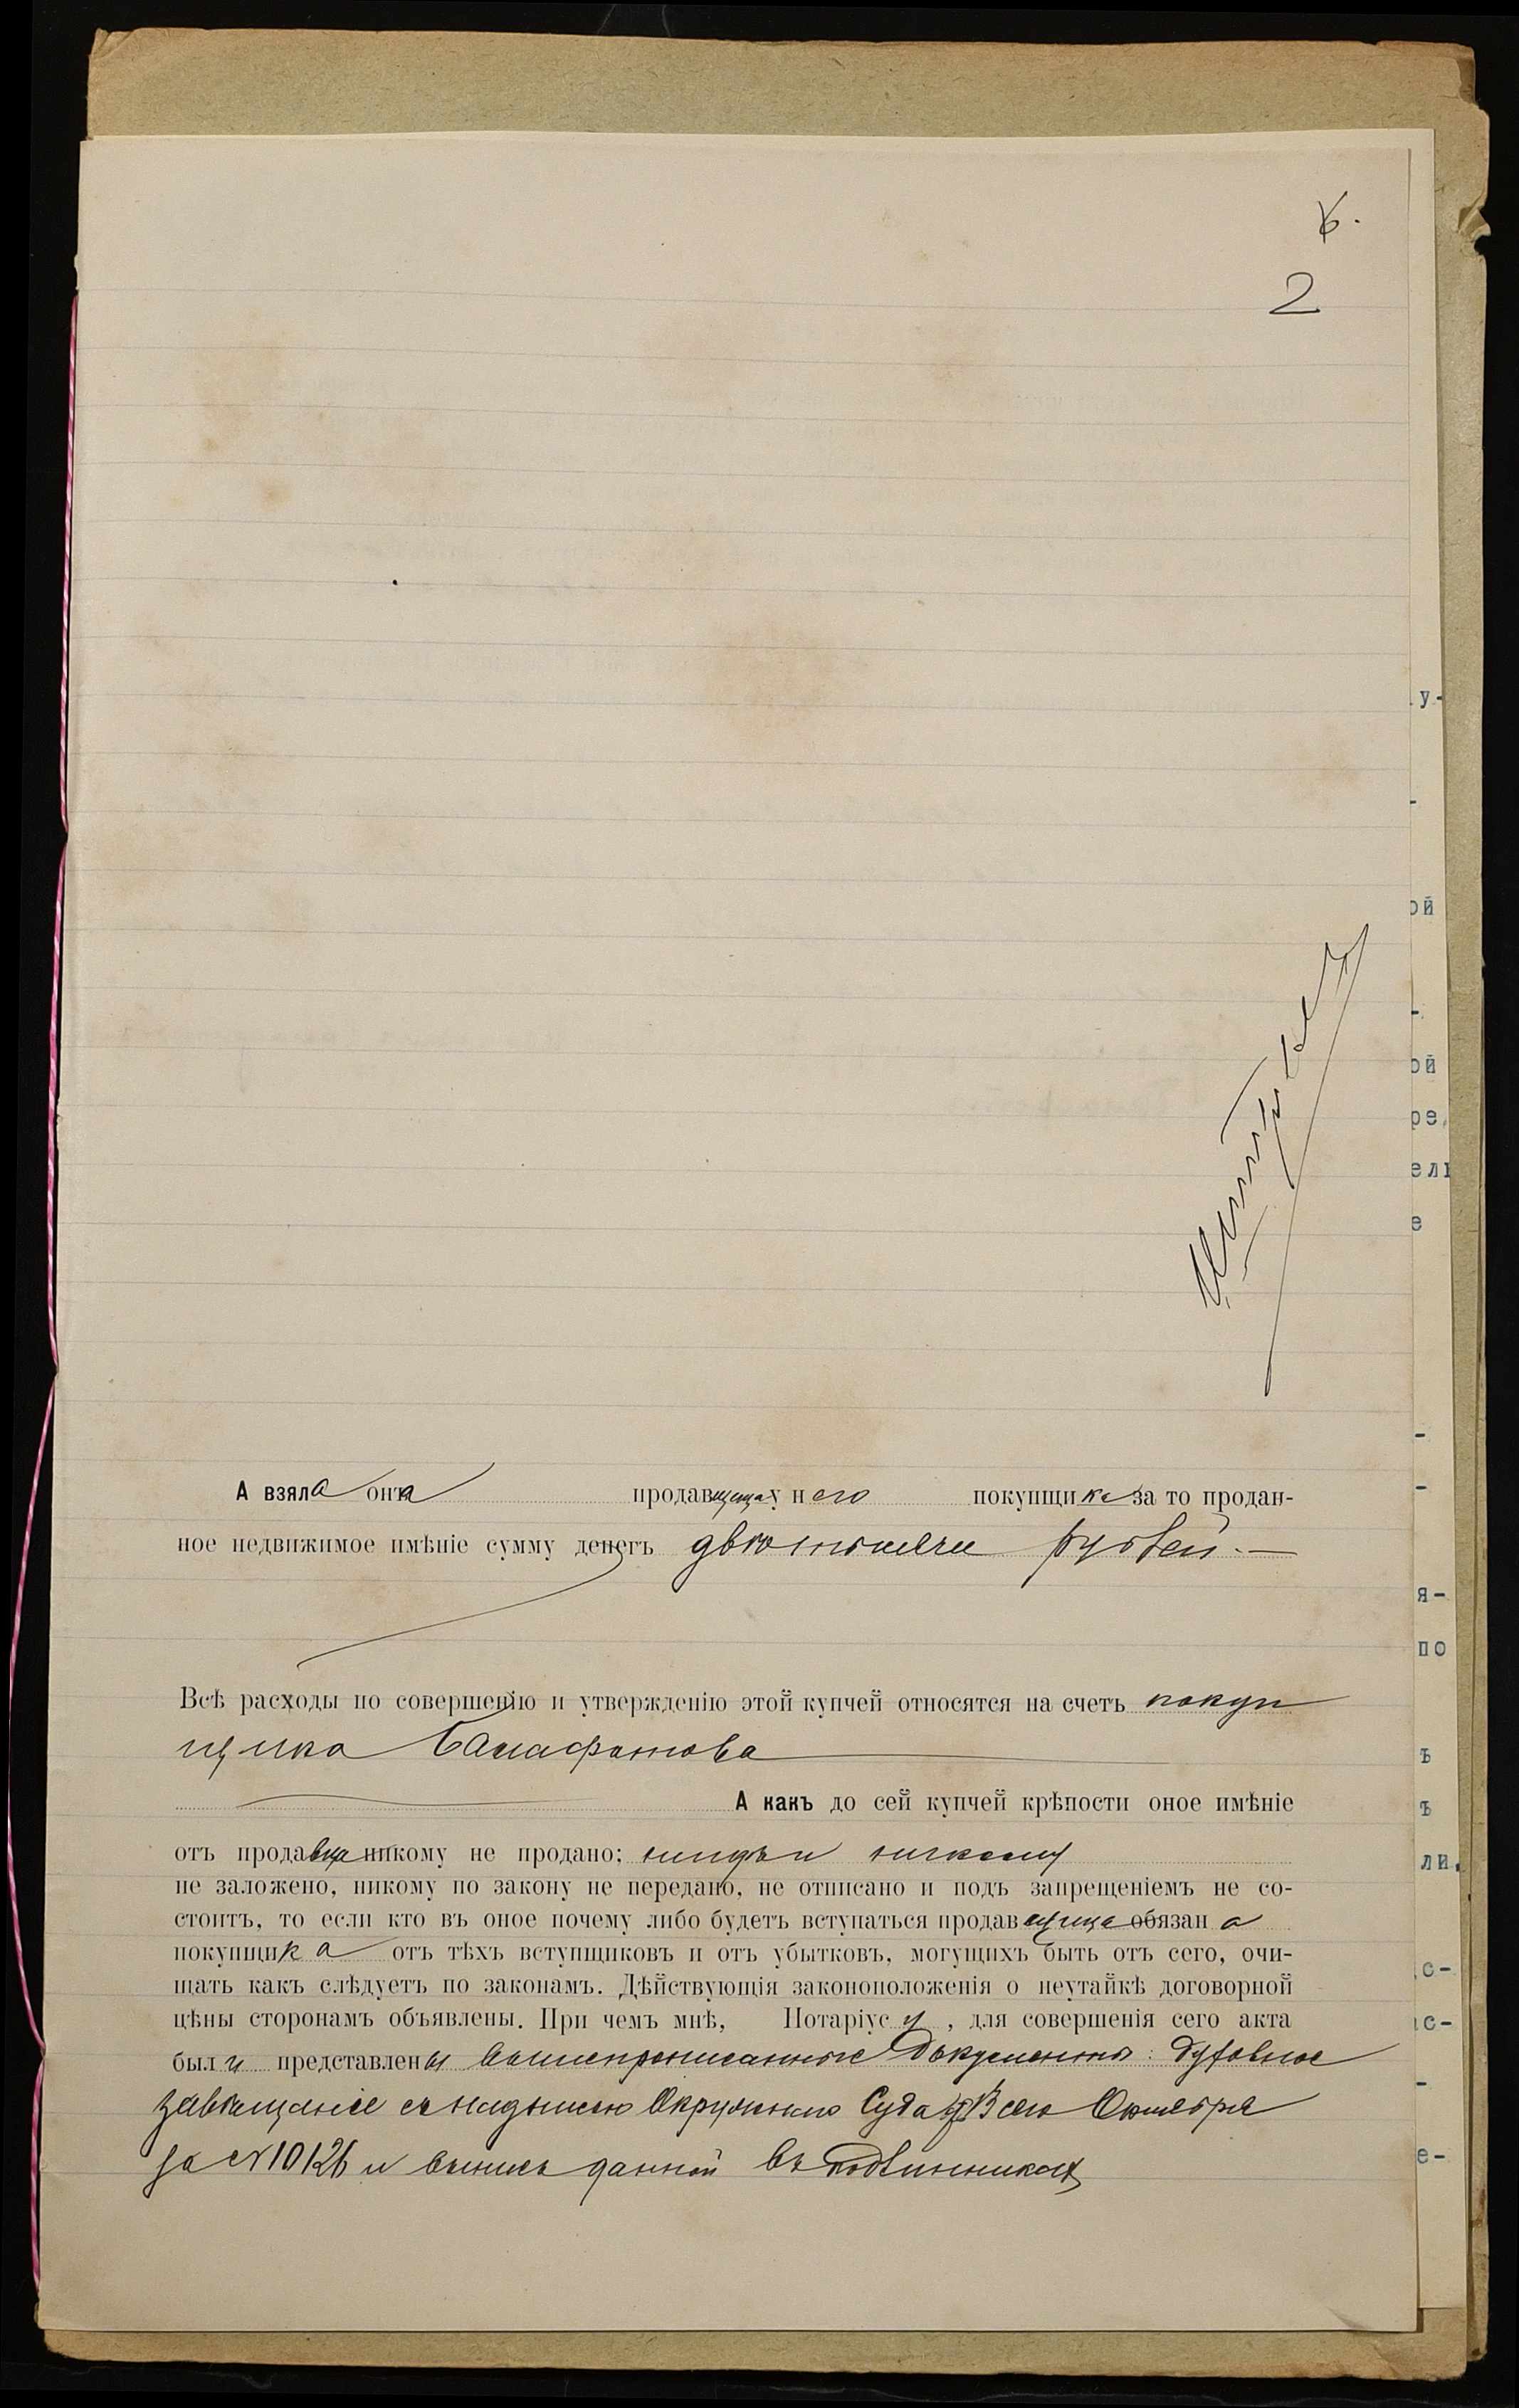 6.
2
у-
-
ой
-
ой
ре
ель
е
-
А взяла она продавщица у него покупщика за то продан-
-
ное недвижимое имѣніе сумму денегъ двѣ тысячи рублей. —
я-
по
Всѣ расходы по совершенію и утвержденію этой купчей относятся на счетъ покуп
щика
ъ
А какъ до сей купчей крѣпости оное имѣніе
ъ
отъ продавца никому не продано; нигдѣ и никому
ли.
не заложено, никому по закону не передано, не отписано и подъ запрещеніемъ не со-
стоитъ, то если кто въ оное почему либо будетъ вступаться продавщица обязана
покупщика отъ тѣхъ вступщиковъ и отъ убытковъ, могущихъ быть отъ сего, очи-
с-
щать какъ слѣдуетъ по законамъ. Дѣйствующія законоположенія о неутайкѣ договорной
цѣны сторонамъ объявлены. При чемъ мнѣ, Нотаріусу, для совершенія сего акта
с-
были представлены вышепрописанные документы: духовное
-
завѣщаніе съ надписью Окружнаго Суда 13 сего Октября
за №10126 и выпись данной въ подлинникахъ
е-